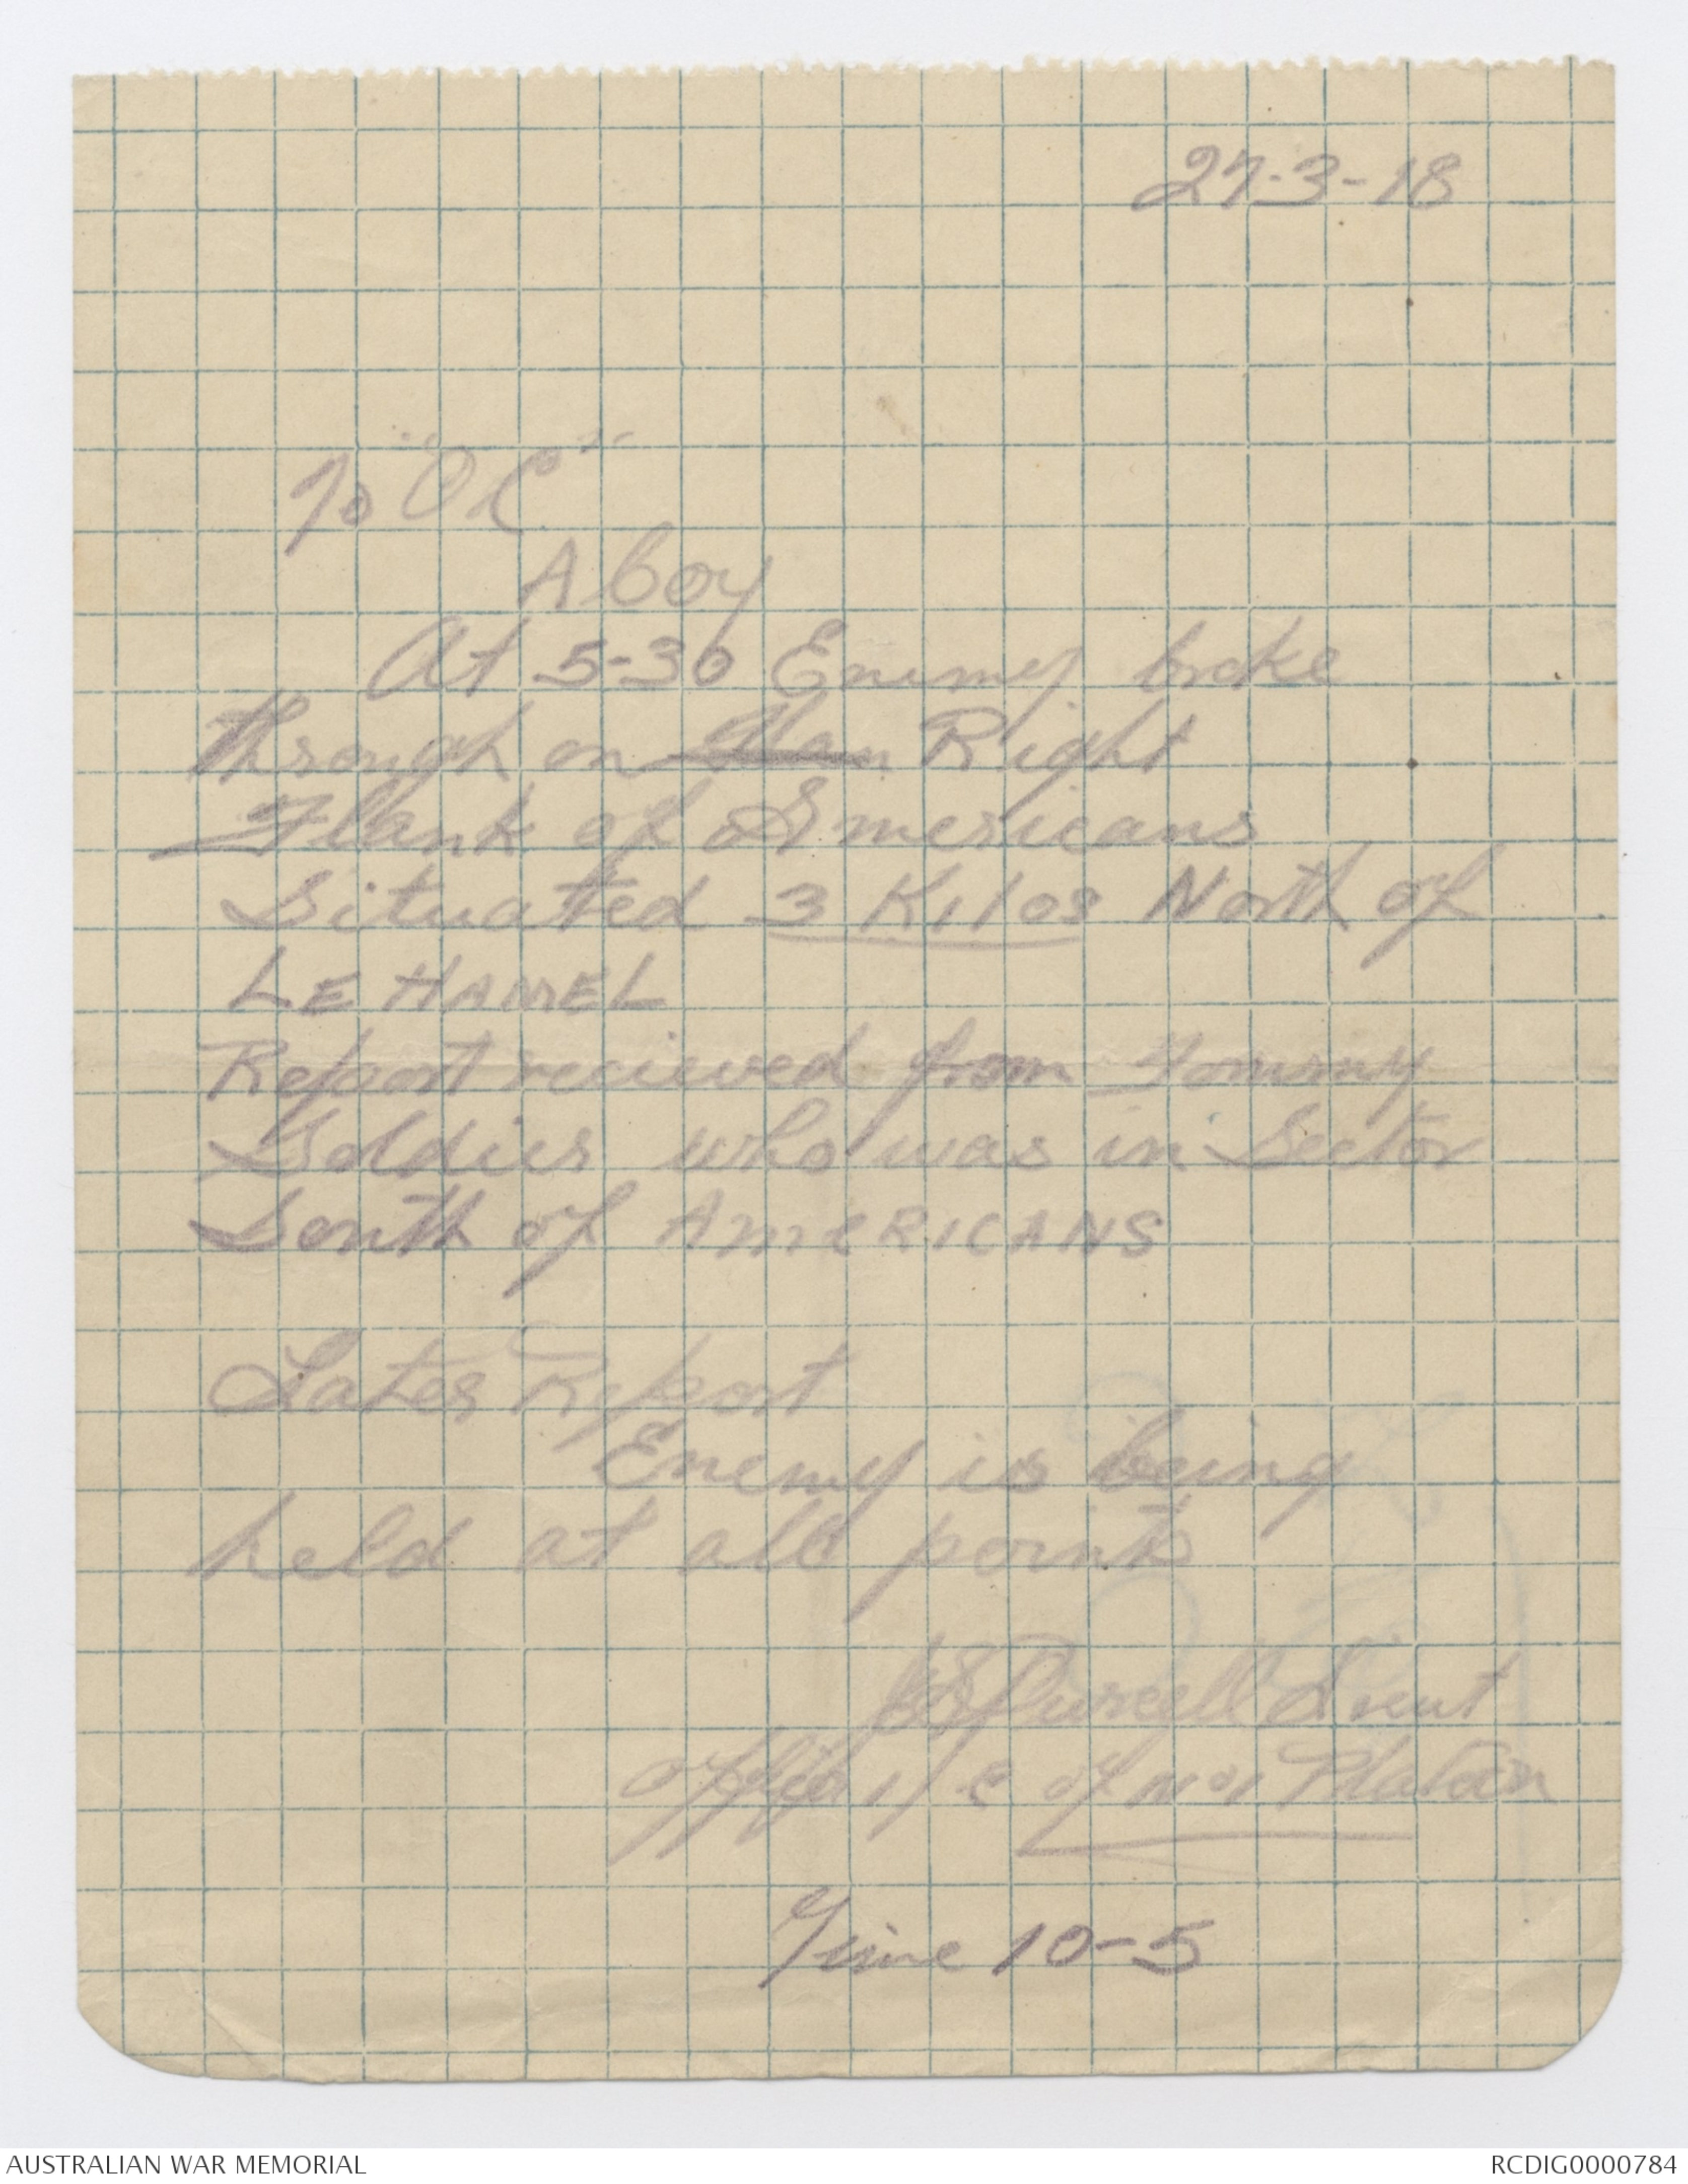 27-3-18
To "O.C."
A Coy
At 5-30 Enemy broke
through on Right
Flank of Americans
Situated 3 Kilos North of
LE HAMEL
Report recieved from Tommy
Soldier who was in Sector
South of AmeRICANS
Later Report
Enemy is being
held at all points
Purcell Lieut
officer i/c of No 1 Platoon
Time 10-5
AUSTRALIAN WAR MEMORIAL
RCDIG0000784